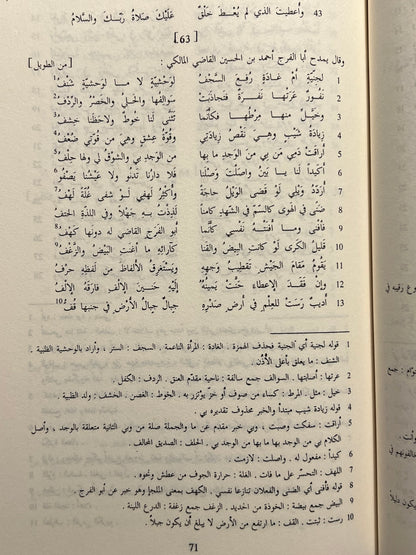 43 وأعطيت الذي لم يُعْطَ خَلْقٌ عَلَيْكَ صَلاةُ رَبِّكَ والسَّلامُ
[63]
وقال يمدح أبا الفرج أحمد بن الحسين القاضي المالكي : [من الطويل]
1 لِجِنِّيَّةٍ أَمْ غَادَةٍ رُفِعَ السَّجْفُ لِوَحْشِيَّةٍ لا مـا لِوَحْشِيَّةٍ شَنْفُ¹
2 نَفُورٌ عَرَتْهَا نَفرَةٌ فَتَجاذَبَتْ سَوالِفُها والحَلْيُ والخَصْرُ والرِّدْفُ²
3 وخَيَّلَ منها مِرْطُها فكأنَّما تَثَنَّى لَنا خُوطٌ ولاحَظَنا خِشْفُ³
4 زِيادَةُ شَيْبٍ وهيَ نَقْصُ زِيادَتي وقُوَّةُ عِشْقٍ وهيَ من قُوَّتي ضَعْفُ⁴
5 أَرَاقَتْ دَمي مَن بي مِنَ الوَجْدِ ما بها من الوَجدِ بي والشَّوْقُ لي ولها حِلْفُ⁵
6 أَكَيْداً لَنا يا بَيْنُ واصَلْتَ وَصْلَنا فلا دارُنا تَدنُو ولا عَيْشُنا يَصْفُو⁶
7 أُرَدِّدُ وَيْلِي لَوْ قَضى الوَيْلُ حاجَةً وأُكْثِرُ لَهْفِي لَوْ شَفى غُلَّةً لَهْفُ⁷
8 ضَنًى في الهَوى كالسّمّ في الشّهدِ كامناً لَذِذْتُ بِهِ جَهْلاً وفي اللذَّةِ الحَتْفُ
9 فأَفنى وما أَفْنَتْهُ نَفْسي كأنَّما أبو الفَرَجِ القاضي له دونَها كَهْفُ⁸
10 قَليلُ الكَرَى لَوْ كانَتِ البِيضُ والقَنا كآرائِهِ ما أَغْنَتِ البَيْضُ والزَّغْفُ⁹
11 يَقُومُ مَقامَ الجَيْشِ تَقطيبُ وَجهِهِ ويَسْتَغْرِقُ الألْفاظَ من لَفظِهِ حَرْفُ
12 وإن فَقَدَ الإعطاءَ حَنَّتْ يَمينُهُ إلَيْهِ حَنِينَ الإلْفِ فارَقَهُ الإلْفُ
13 أَديبٌ رَسَتْ للعِلْمِ في أرضِ صَدْرِهِ جِبالٌ جِبالُ الأرْضِ في جنبها قُفُّ¹⁰
1 قوله لجنية أي ألجنية فحذف الهمزة . الغادة : المرأة الناعمة . السجف : الستر ، وأراد بالوحشية الظبية .
الشنف : ما يعلق بأعلى الأُذُن .
2 عرتها : أصابتها . السوالف جمع سالفة : ناحية مقدّم العنق . الردف : الكفل .
3 خيل : مثل . المرط : كساء من صوف أو خز يؤتزر به . الخوط : الغصن . الخشف : ولد الظبية .
4 قوله زيادة شيب مبتدأ والخبر محذوف تقديره بي .
5 أراقت : سفكت وصبت ، وبي خبر مقدم عن ما والجملة صلة من وبي الثانية متعلقة بالوجد ، وأصل
الكلام بي من الوجد بها ما بها من الوجد بي . الحلف : الصديق المحالف .
6 كيداً : مفعول له . واصلت : لازمت .
7 اللهف : التحسّر على ما فات . الغلة : حرارة الجوف من عطش ونحوه .
8 قوله فأفنى أي الضنى والفعلان تنازعا نفسي . الكهف بمعنى الملجإ وهو خبر عن أبو الفرج .
9 البيض جمع بيضة : الخوذة من الحديد . الزغف جمع زغفة : الدرع اللينة .
10 رست : ثبتت . القف : ما ارتفع من الأرض لا يبلغ أن يكون جبلاً .
71